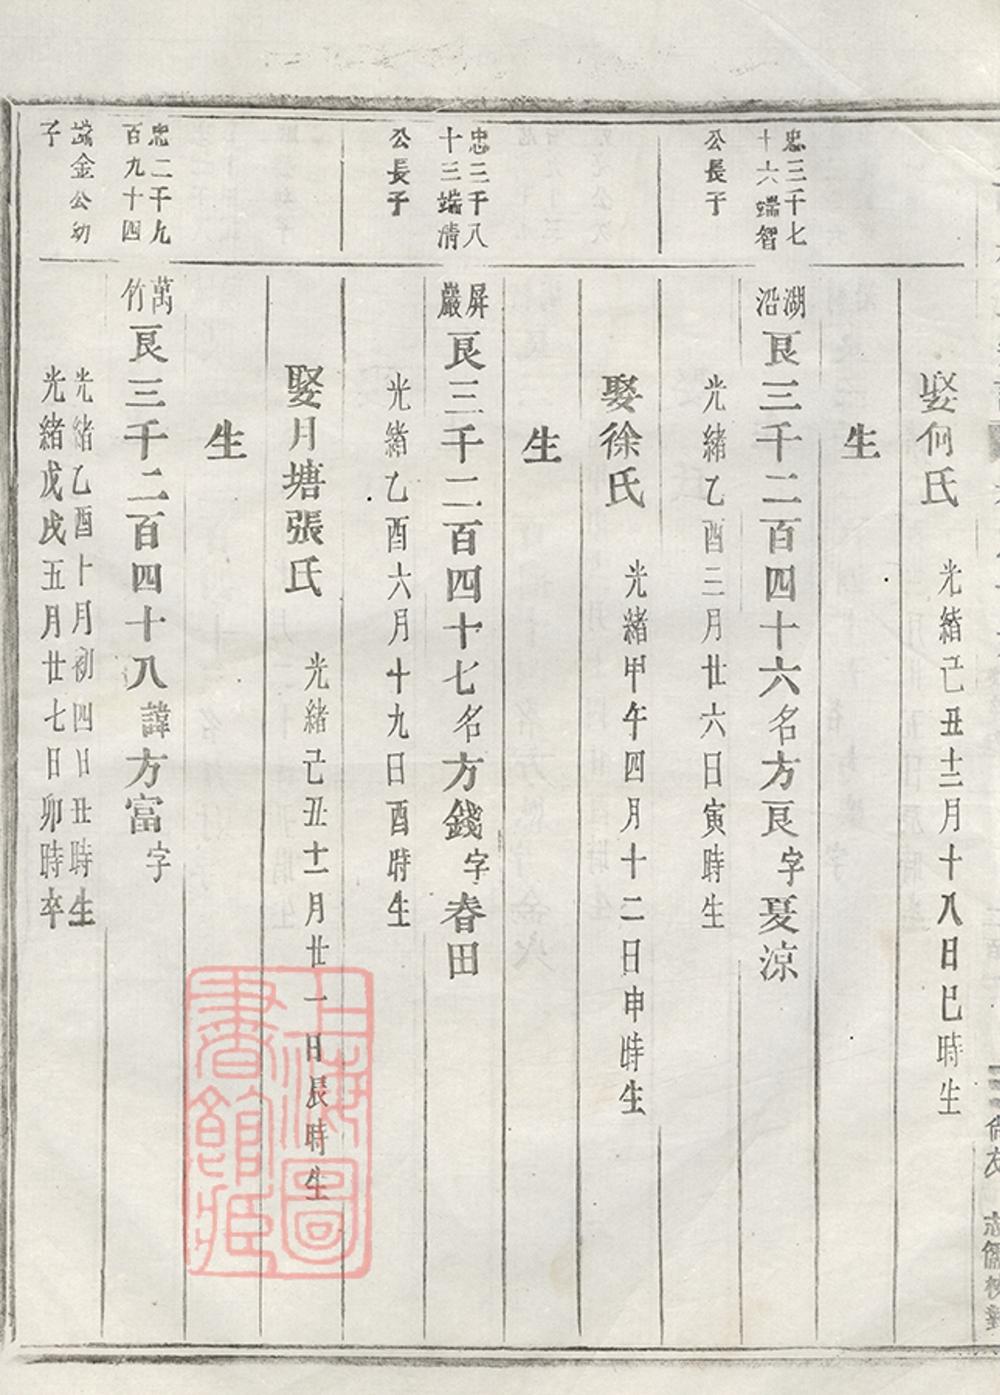 娶何氏
光緒己丑十二月十八日巳時生
生
忠三千七
十六端智
公長子
湖
沿
良三千二百四十六名方良字夏涼
光緒乙酉三月廿六日寅時生
娶徐氏
光緒甲午四月十二日申時生
生
忠三千八
十三端清
公長子
屏
巖
良三千二百四十七名方錢字春田
光緒乙酉六月十九日酉時生
娶月塘張氏
光緒己丑十一月廿一日辰時生
生
忠二千九
百九十四
端金公幼
子
萬
竹
良三千二百四十八諱方富字
光緒乙酉十月初四日丑時生
光緒戊戌五月廿七日卯時卒
上海圖
書館藏